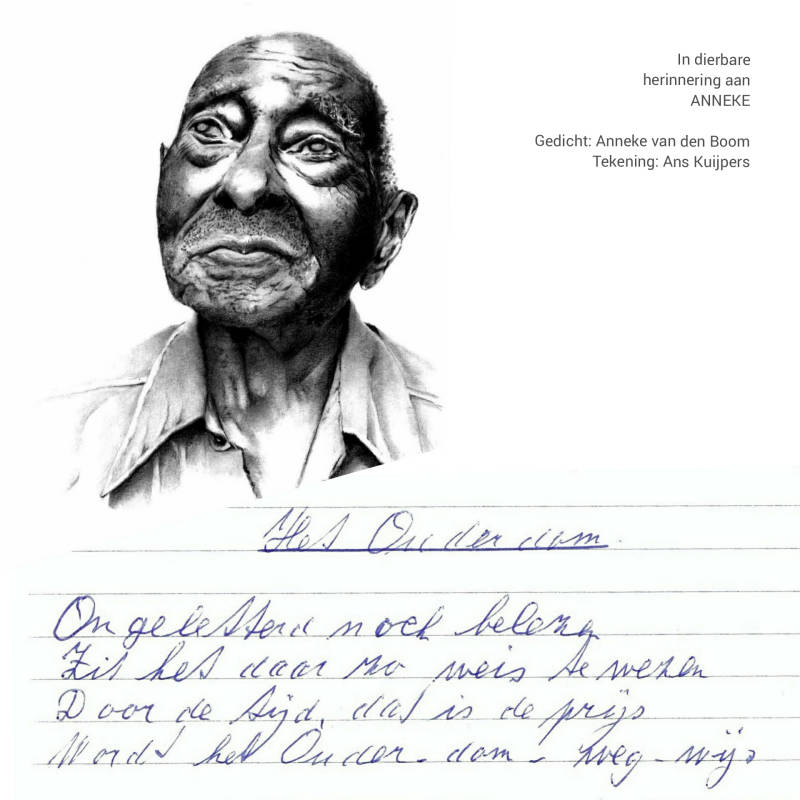 In dierbare
herinnering aan
ANNEKE
Gedicht: Anneke van den Boom
Tekening: Ans Kuijpers
Het Ouderdom.
Ongeletterd noch belezen
Zit het daar zo weis te wezen
Door de tijd, dat is de prijs
Wordt het Ouder-dom - weg-wijs